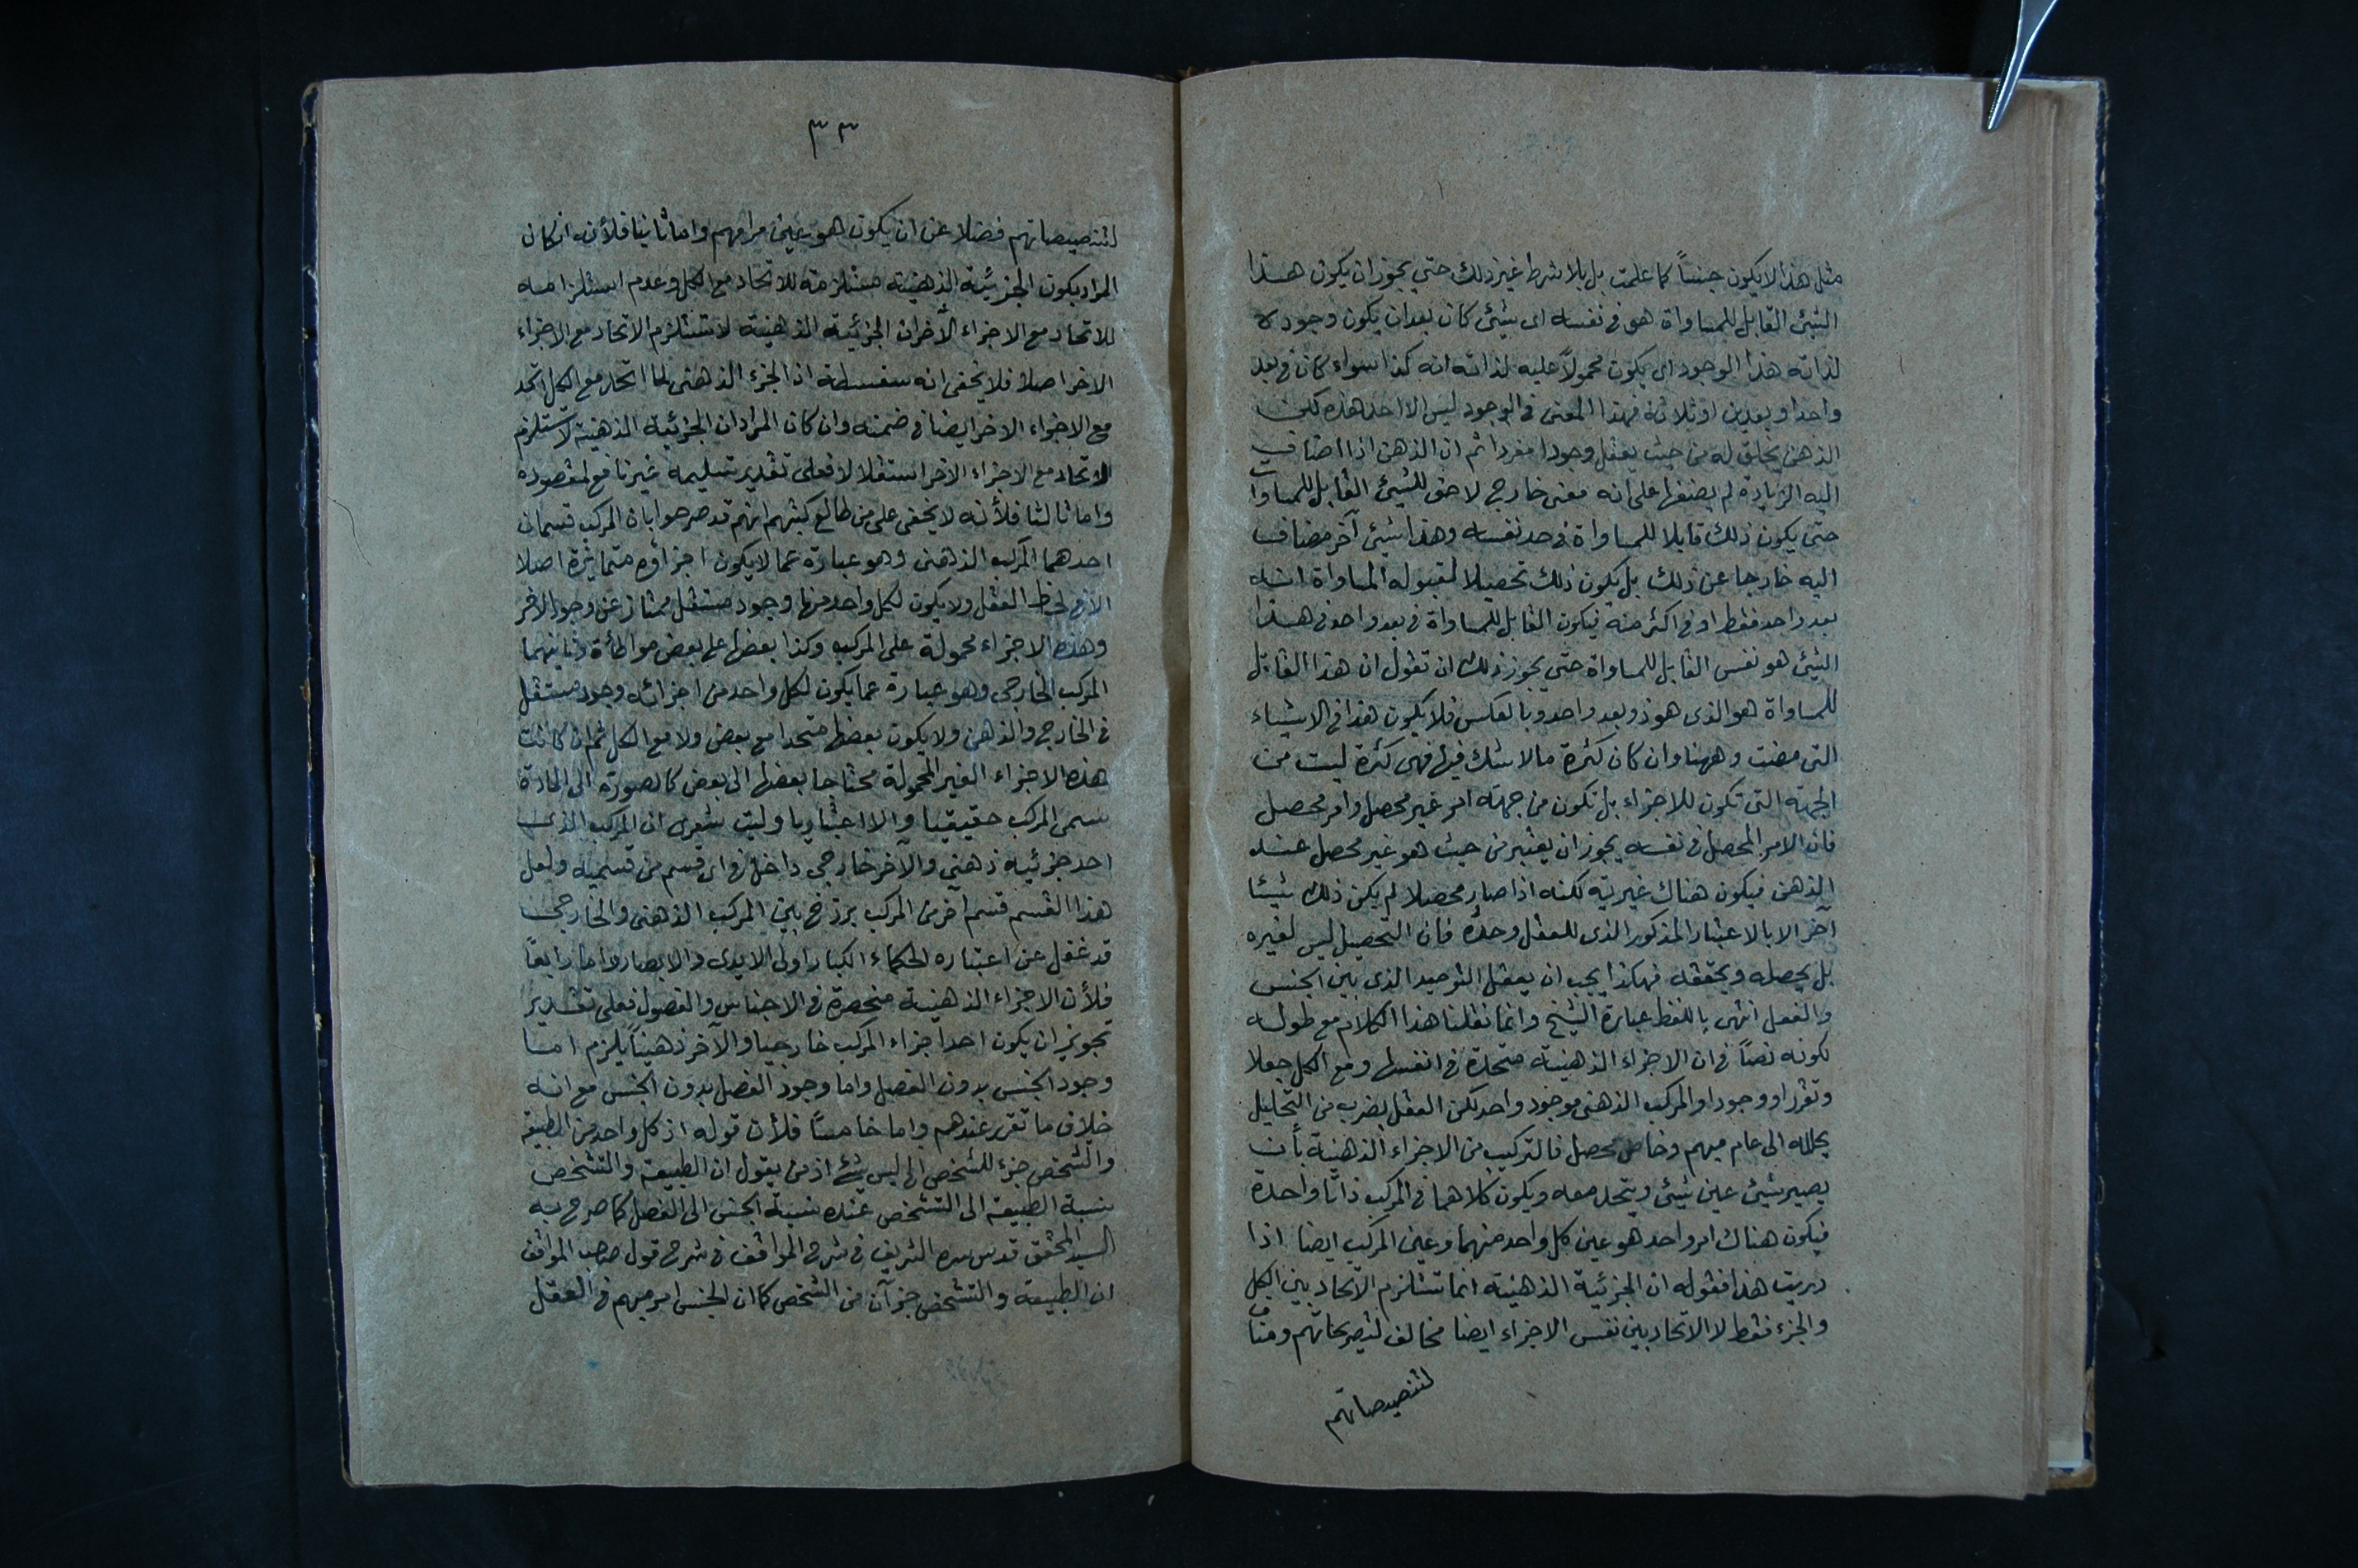 مثل هذا لا يكون جنساً كما علمت بل بلا شرط غير ذلك حتى يجوز ان يكون هذا
الشئ القابل للمساواة هو فى نفسه اى شيئ كان بعد ان يكون وجوده
لذاته هذا الوجود اى يكون محمولاً عليه لذاته انه كذا سواء كان فى بعد
واحد او بعدين او ثلاثة فهذا المعنى فى الوجود ليس الا احد هذه لكن
الذهن يخلق له من حيث يعقل وجودا مفردا ثم ان الذهن اذا اضاف
اليه الزيادة لم يضفها على انه معنى خارج لاحق للشيئ القابل للمساوات
حتى يكون ذلك قابلا للمساواة فى حد نفسه وهذا شيئ آخر مضاف
اليه خارجا عن ذلك بل يكون ذلك تحصيلا لقبوله المساواة انه
بعد واحد فقط او فى اكثر منه فيكون القابل للمساواة فى بعد واحد فى هذا
الشيئ هو نفس القابل للمساواة حتى يجوز لك ان تقول ان هذا القابل
للمساواة هو الذى هو ذو بعد واحد وبالعكس فلا يكون هذا فى الاشياء
التى مضت وههنا وان كان كثرة ما لا شك فيها فهى كثرة ليست من
الجهة التى تكون للاجزاء بل تكون من جهة امر غير محصل وامر محصل
فان الامر المحصل فى نفسه يجوز ان يعتبر من حيث هو غير محصل عند
الذهن فيكون هناك غيرية لكنه اذا صار محصلا لم يكن ذلك شيئا
آخر الا بالاعتبار المذكور الذى للعقل وحده فان التحصيل ليس لغيره
بل يحصله ويحققه فهكذا يجب ان يعقل التوحيد الذى بين الجنس
والفصل انتهى باللفظ عبارة الشيخ وانما نقلنا هذا الكلام مع طوله
لكونه نصاً فى ان الاجزاء الذهنية متحدة فى انفسها ومع الكل جعلا
وتقررا ووجودا والمركب الذهنى موجود واحد لكن العقل بضرب من التحليل
يحلله الى عام مبهم وخاص محصل فالتركيب من الاجزاء الذهنية بأن
يصير شيئ عين شيئ ويتحد معه ويكون كلاهما فى المركب ذاتا واحدة
فيكون هناك امر واحد هو عين كل واحد منهما وعين المركب ايضا اذا
دريت هذا فقوله ان الجزئية الذهنية انما تستلزم الاتحاد بين الكل
والجزء فقط لا الاتحاد بين نفس الاجزاء ايضا مخالف لتصريحاتهم ومناف
لتنصيصاتهم
٣٣
لتنصيصاتهم فضلا عن ان يكون هو عين مرامهم واما ثانيا فلأن ان كان
المراد بكون الجزئية الذهنية مستلزمة للاتحاد مع الكل وعدم استلزامه
للاتحاد مع الاجزاء الأخر ان الجزئية الذهنية لا تستلزم الاتحاد مع الاجزاء
الاخر اصلا فلا يخفى انه سفسطة اذ الجزء الذهنى لما اتحد مع الكل اتحد
مع الاجزاء الاخر ايضا فى ضمنه وان كان المراد ان الجزئية الذهنية لا تستلزم
الاتحاد مع الاجزاء الاخر استقلالا فعلى تقدير تسليمه غير نافع لمقصوده
واما ثالثا فلأنه لا يخفى على من طالع كتبهم انهم قد صرحوا بان المركب قسمان
احدهما المركب الذهنى وهو عبارة عما لا يكون اجزاؤه متمايزة اصلا
الا فى لحاظ العقل ولا يكون لكل واحد منها وجود مستقل ممتاز عن وجود الاخر
وهذه الاجزاء محمولة على المركب وكذا بعضها على بعض مواطأة وثانيهما
المركب الخارجى وهو عبارة عما يكون لكل واحد من اجزائه وجود مستقل
فى الخارج والذهن ولا يكون بعضها متحدا مع بعض ولا مع الكل ثم ان كانت
هذه الاجزاء الغير المحمولة محتاجا بعضها الى بعض كالصورة الى المادة
سمى المركب حقيقيا والا اعتباريا وليت شعرى ان المركب الذى
احد جزئيه ذهنى والآخر خارجى داخل فى اى قسم من قسميه ولعل
هذا القسم قسم آخر من المركب برزخ بين المركب الذهنى والخارجى
قد غفل عن اعتباره الحكماء الكبار اولى الايدى والابصار واما رابعاً
فلأن الاجزاء الذهنية منحصرة فى الاجناس والفصول فعلى تقدير
تجويز ان يكون احد اجزاء المركب خارجيا والآخر ذهنيا يلزم اما
وجود الجنس بدون الفصل واما وجود الفصل بدون الجنس مع انه
خلاف ما تقرر عندهم واما خامساً فلأن قوله اذ كل واحد من الطبيعة
والتشخص جزء للشخص الى ليس بشئ اذ من يقول ان الطبيعة والتشخص
نسبة الطبيعة الى التشخص عنده نسبة الجنس الى الفصل كما صرح به
السيد المحقق قدس سره الشريف فى شرح المواقف فى شرح قول صاحب المواقف
ان الطبيعة والتشخص جزآن من الشخص كما ان الجنس امر مبهم فى العقل